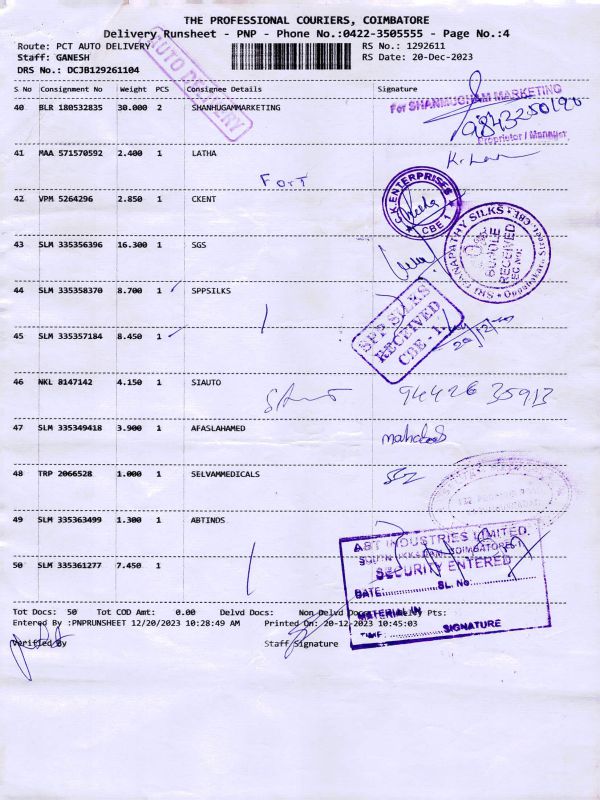 THE PROFESSIONAL COURIERS, COIMBATORE
Delivery Runsheet - PNP - Phone No.:0422-3505555 - Page No.:4
Route: PCT AUTO DELIVERY RS No.: 1292611
Staff: GANESH RS Date: 20-Dec-2023
DRS No.: DCJB129261104
AUTO DELIVERY
S No Consignment No Weight PCS Consignee Details Signature
40 BLR 180532835 30.000 2 SHANHUGAMMARKETING
For SHANMUGHAM MARKETING
Proprietor / Manager
41 MAA 571570592 2.400 1 LATHA
Fort
42 VPM 5264296 2.850 1 CKENT
C.K. ENTERPRISES
CBE 1
43 SLM 335356396 16.300 1 SGS
SRI GANAPATHY SILKS
BUNDLE
RECEIVED
44 SLM 335358370 8.700 1 SPPSILKS
SPP SILKS
RECEIVED
CBE - 1.
45 SLM 335357184 8.450 1
46 NKL 8147142 4.150 1 SIAUTO
94426 35913
47 SLM 335349418 3.900 1 AFASLAHAMED
48 TRP 2066528 1.000 1 SELVAMMEDICALS
49 SLM 335363499 1.300 1 ABTINDS
ABT INDUSTRIES LIMITED.
SECURITY ENTERED
50 SLM 335361277 7.450 1
DATE: SL. No:
MATERIAL IN
TIME: SIGNATURE
Tot Docs: 50 Tot COD Amt: 0.00 Delvd Docs: Non Delvd Pts:
Entered By :PNPRUNSHEET 12/20/2023 10:28:49 AM Printed On: 20-12-2023 10:45:03
Verified By Staff Signature